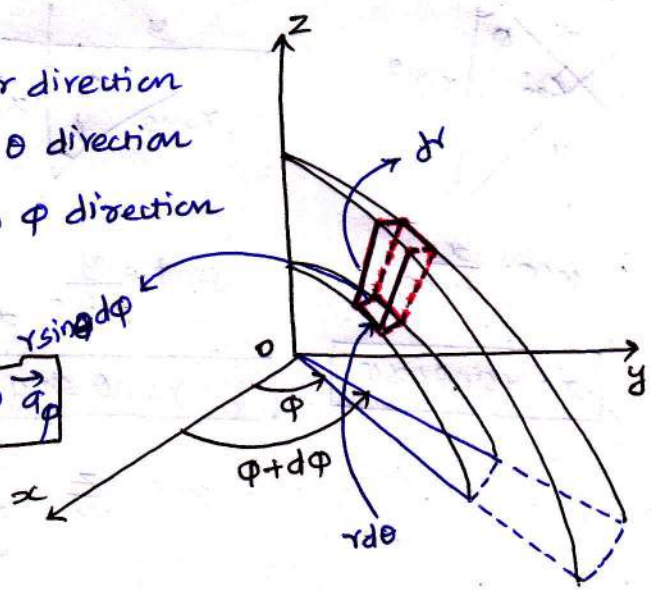 z
r direction
θ direction
φ direction
dr
r sinθ dφ
0
y
a⃗φ
φ
φ+dφ
x
rdθ